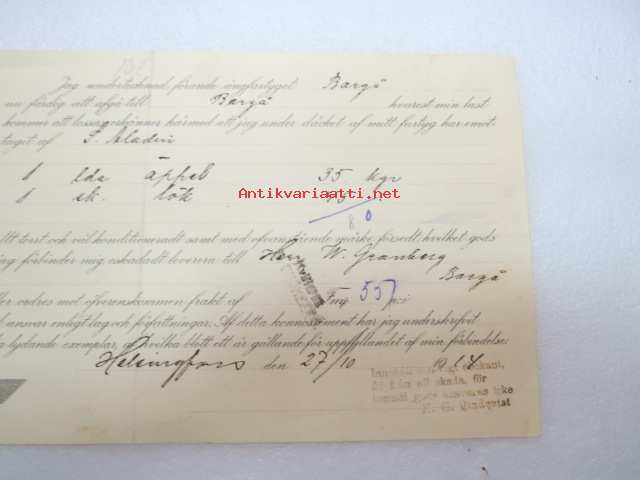 Jag undertecknad, förande ångfartyget Borgå
nu färdig att afgå till Borgå hvarest min last
kommer att lossas, erkänner härmed att jag under däcket af mitt fartyg har emot-
taget af S. Aladin
1 lda äppel 35 kgr
1 sk. lök 45
Antikvariaatti.net
8 0
Allt torrt och väl konditioneradt samt med ofvanstående märke försedt, hvilket gods
jag förbinder mig oskadadt leverera till Herr W. Granberg
Borgå
eller ordres mot öfverenskommen frakt af Fmk 55 pi
ansvar enligt lag och författningar. Af detta konnossement har jag underskrifvit
lydande exemplar af hvilka blott ett är gällande för uppfyllandet af min förbindelse.
Helsingfors den 27/10 1914
obekant,
skada, för
gods ansvaras icke
Qandqvist